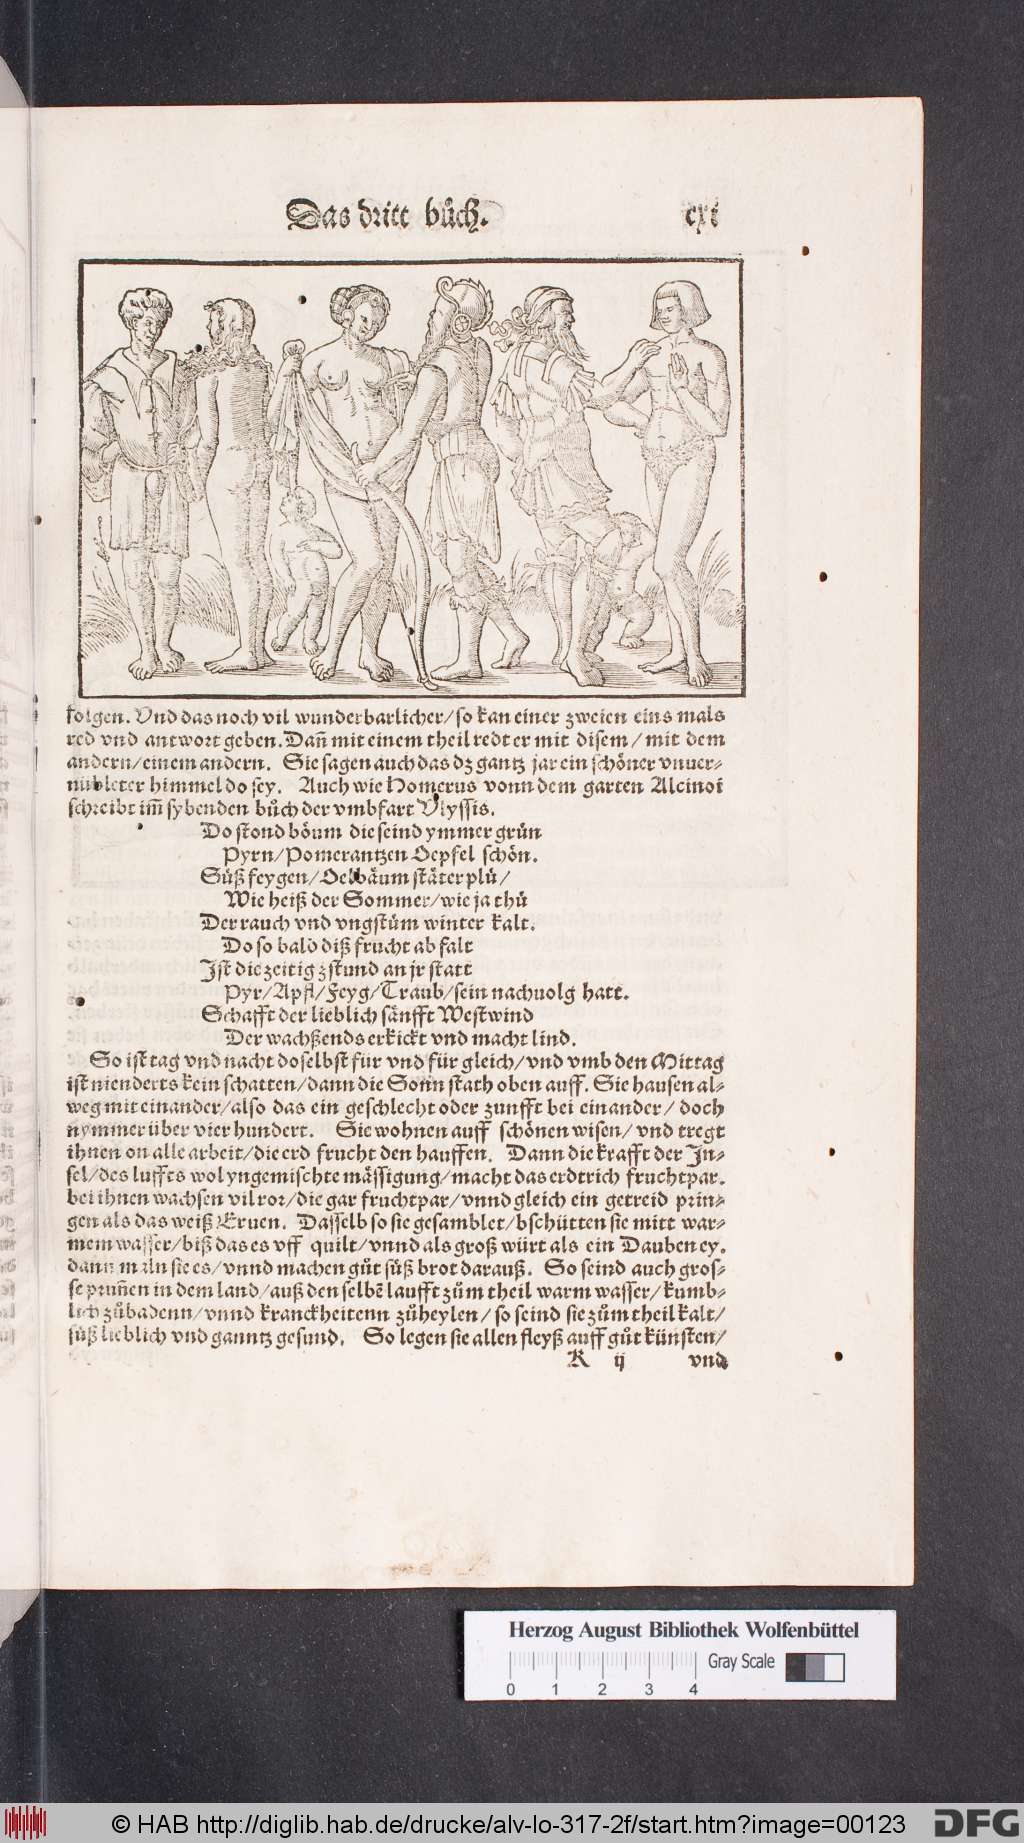 Das dritt bůch. cxi
folgen. Vnd das noch vil wunderbarlicher/ so kan einer zweien eins mals
red vnd antwort geben. Dañ mit einem theil redt er mit disem / mit dem
andern/ einem andern. Sie sagen auch das dz gantz jar ein schöner vnuer-
nübleter himmel do sey. Auch wie Homerus vonn dem garten Alcinoi
schreibt im̃ sybenden bůch der vmbfart Vlyssis.
Do stond böum die seind ymmer grün
Pyrn/ Pomerantzen Oepfel schön.
Süß feygen/ Oelbäum stäter plü/
Wie heiß der Sommer/ wie ja thü
Der rauch vnd vngstüm winter kalt.
Do so bald diß frucht ab falt
Jst die zeitig zstund an jr statt
Pyr/ Apfl/ Feyg/ Traub/ sein nachuolg hatt.
Schafft der lieblich sänfft Westwind
Der wachßends erkickt vnd macht lind.
So ist tag vnd nacht doselbst für vnd für gleich/ vnd vmb den Mittag
ist nienderts kein schatten/ dann die Sonn stath oben auff. Sie hausen al-
weg mit einander/ also das ein geschlecht oder zunfft bei einander/ doch
nymmer über vier hundert. Sie wohnen auff schönen wisen/ vnd tregt
ihnen on alle arbeit/ die erd frucht den hauffen. Dann die krafft der Jn-
sel/ des luffts wol yngemischte mässigung/ macht das erdtrich fruchtpar.
bei ihnen wachsen vil ror/ die gar fruchtpar/ vnnd gleich ein getreid prin-
gen als das weiß Eruen. Dasselb so sie gesamblet/ bschütten sie mitt war-
mem wasser/ biß das es vff quilt/ vnnd als groß würt als ein Dauben ey.
dann maln sie es/ vnnd machen gůt süß brot darauß. So seind auch gros-
se prun̄en in dem land/ auß den selbē laufft zům theil warm wasser/ kumb-
lich zůbadenn/ vnnd kranckheitenn zůheylen/ so seind sie zům theil kalt/
süß lieblich vnd ganntz gesund. So legen sie allen fleyß auff gůt künsten/
K ij vnd
Herzog August Bibliothek Wolfenbüttel
Gray Scale
0 1 2 3 4
© HAB http://diglib.hab.de/drucke/alv-lo-317-2f/start.htm?image=00123 DFG